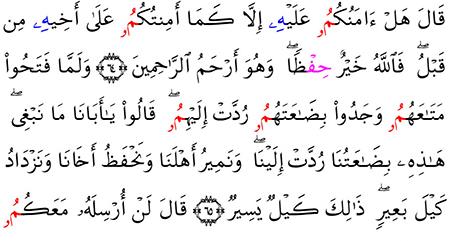 قَالَ هَلۡ ءَامَنُكُمُۥ عَلَيۡهِۦ إِلَّا كَمَا أَمِنتُكُمُۥ عَلَىٰ أَخِيهِۦ مِن
قَبۡلُۖ فَٱللَّهُ خَيۡرٌ حِفۡظٗاۖ وَهُوَ أَرۡحَمُ ٱلرَّٰحِمِينَ ٦٤ وَلَمَّا فَتَحُواْ
مَتَٰعَهُمُۥ وَجَدُواْ بِضَٰعَتَهُمُۥ رُدَّتۡ إِلَيۡهِمُۥۖ قَالُواْ يَٰٓأَبَانَا مَا نَبۡغِيۖ
هَٰذِهِۦ بِضَٰعَتُنَا رُدَّتۡ إِلَيۡنَاۖ وَنَمِيرُ أَهۡلَنَا وَنَحۡفَظُ أَخَانَا وَنَزۡدَادُ
كَيۡلَ بَعِيرٖۖ ذَٰلِكَ كَيۡلٞ يَسِيرٞ ٦٥ قَالَ لَنۡ أُرۡسِلَهُۥ مَعَكُمُۥ